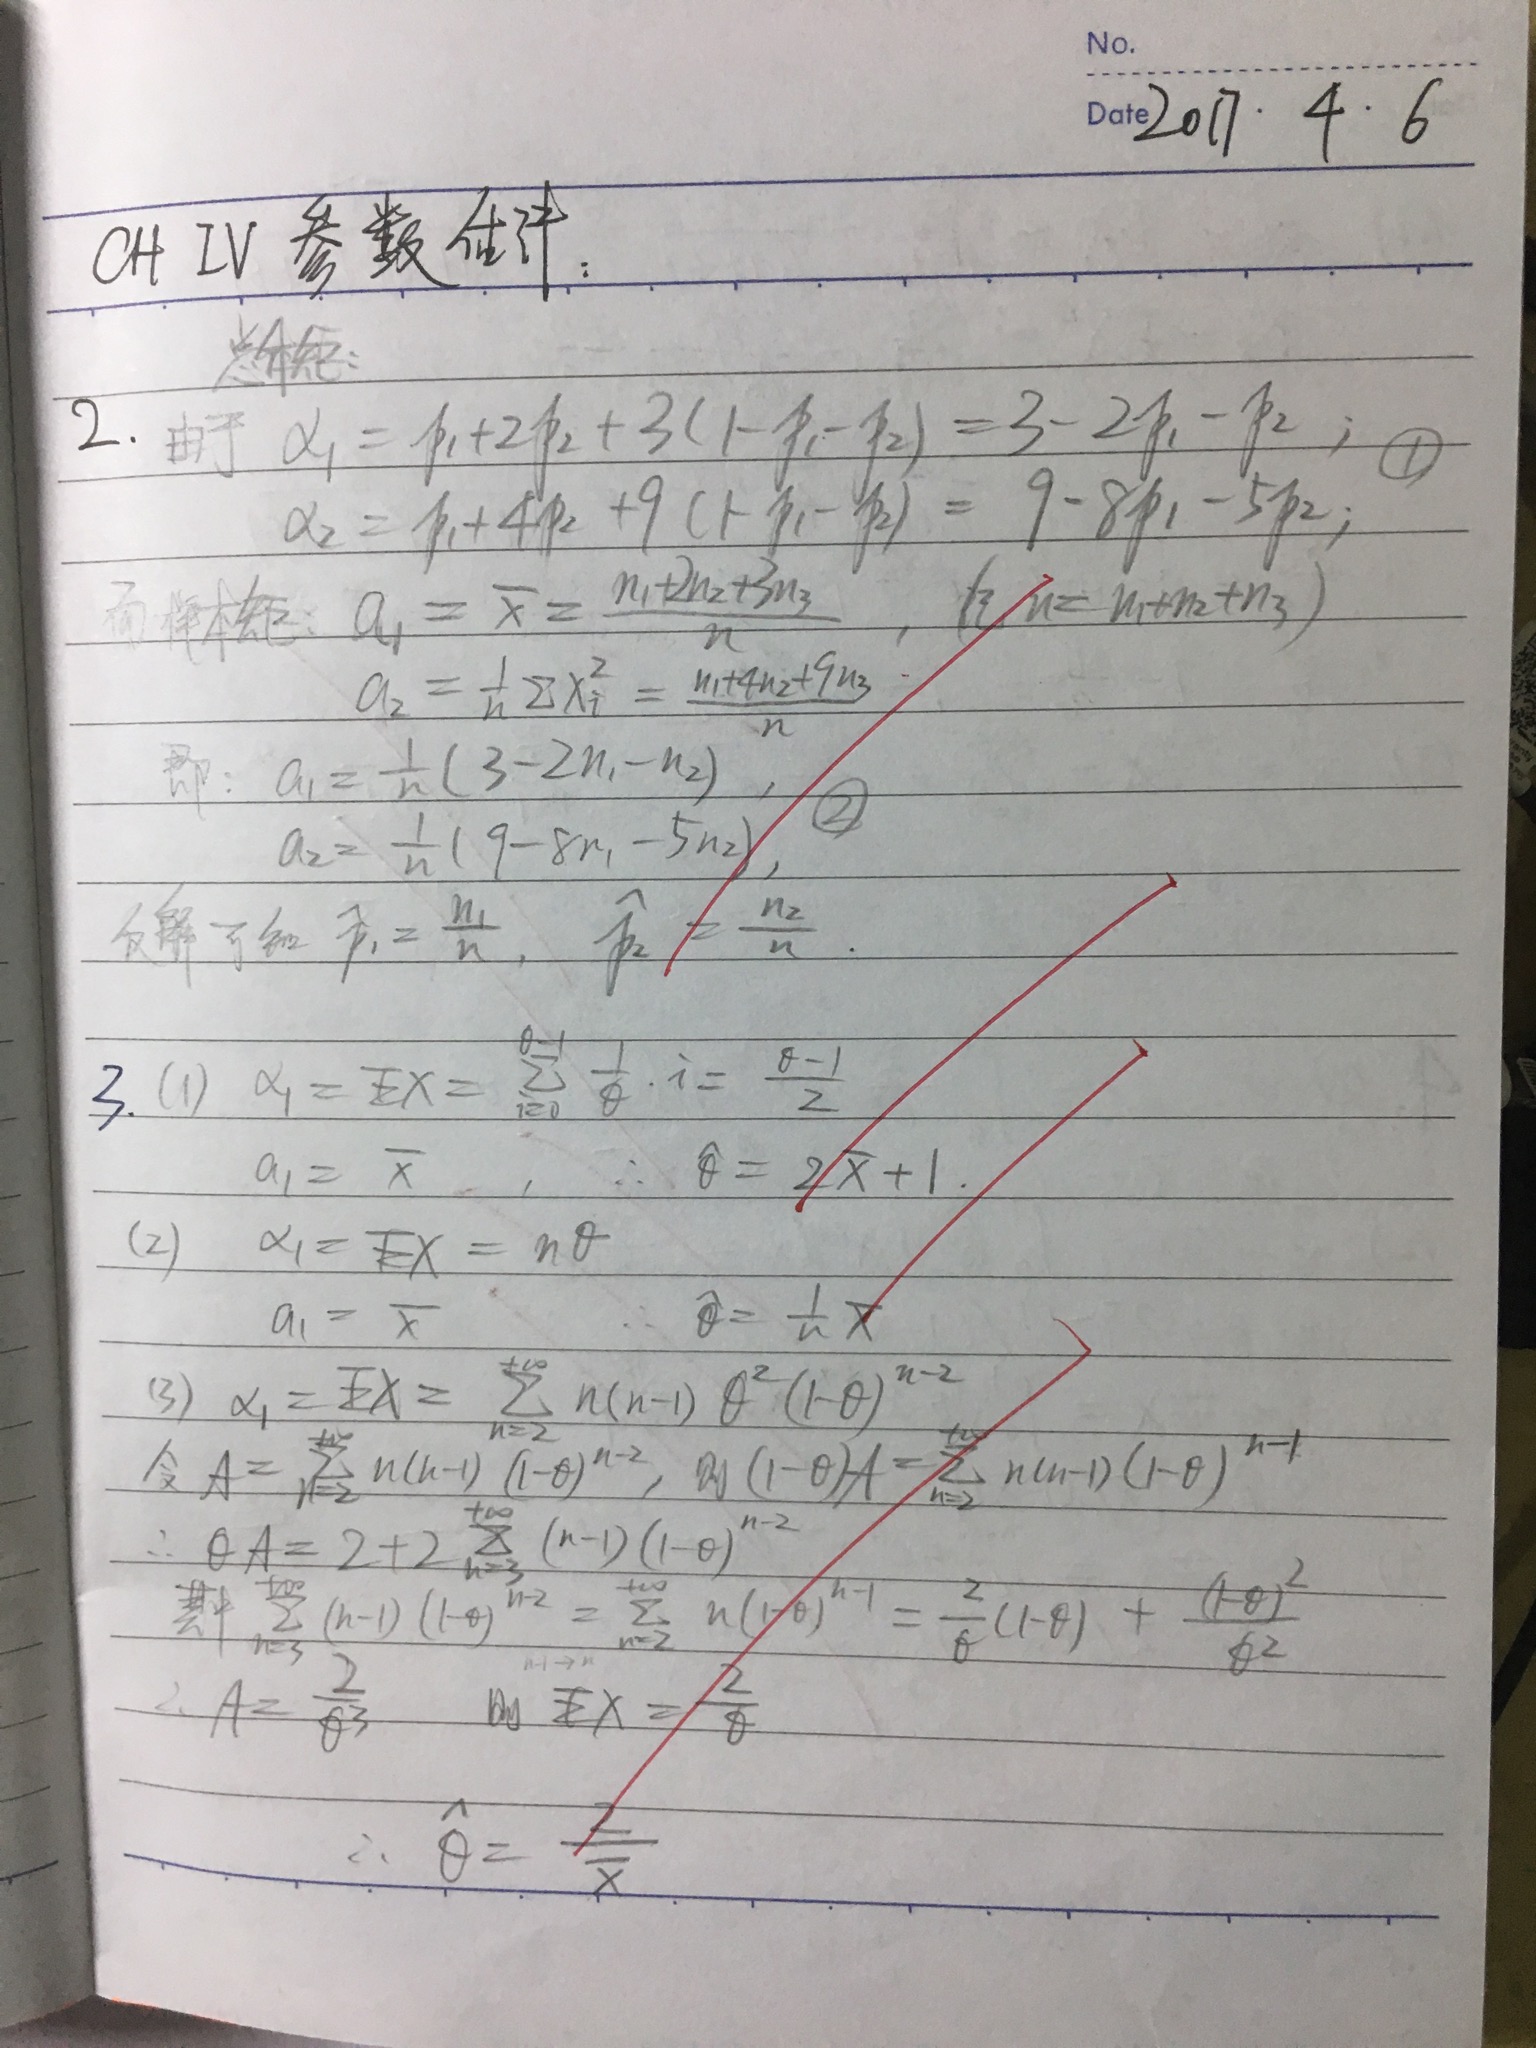 No.
Date 2017.4.6
CH IV 参数估计:
2. 由于 α₁ = p₁+2p₂+3(1-p₁-p₂) = 3-2p₁-p₂ ; ①
α₂ = p₁+4p₂+9(1-p₁-p₂) = 9-8p₁-5p₂;
而样本矩: a₁ = x̄ = (n₁+2n₂+3n₃)/n , ( n=n₁+n₂+n₃)
a₂ = 1/n Σxᵢ² = (n₁+4n₂+9n₃)/n
即: a₁ = 1/n (3-2n₁-n₂) , ②
a₂ = 1/n (9-8n₁-5n₂),
反解可知 p̂₁ = n₁/n , p̂₂ = n₂/n .
3. (1) α₁ = EX = Σ_{i=0}^{θ-1} 1/θ · i = (θ-1)/2
a₁ = x̄ , ∴ θ̂ = 2x̄+1.
(2) α₁ = EX = nθ
a₁ = x̄ ∴ θ̂ = 1/n x̄
(3) α₁ = EX = Σ_{n=2}^{+∞} n(n-1) θ² (1-θ)^{n-2}
令 A = Σ_{n=2}^{+∞} n(n-1) (1-θ)^{n-2}, 则 (1-θ)A = Σ_{n=2}^{+∞} n(n-1)(1-θ)^{n-1}
∴ θA = 2+2 Σ_{n=3}^{+∞} (n-1)(1-θ)^{n-2}
其中 Σ_{n=3}^{+∞} (n-1)(1-θ)^{n-2} = Σ_{n=2}^{+∞} n(1-θ)^{n-1} = 2/θ (1-θ) + (1-θ)²/θ²
n-1→n
∴ A = 2/θ³ 则 EX = 2/θ
∴ θ̂ = 2/x̄